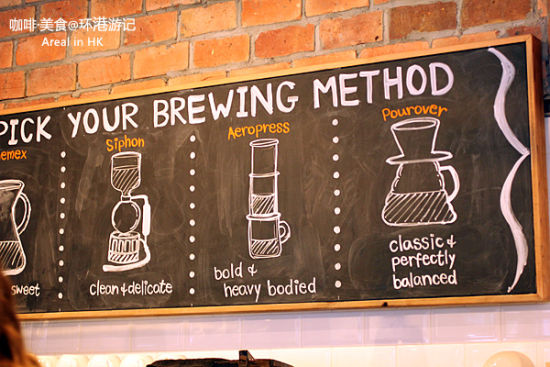 咖啡·美食@环港游记
Areal in HK
PICK YOUR BREWING METHOD
Siphon
Aeropress
Pourover
sweet
clean & delicate
bold &
heavy bodied
classic &
perfectly
balanced